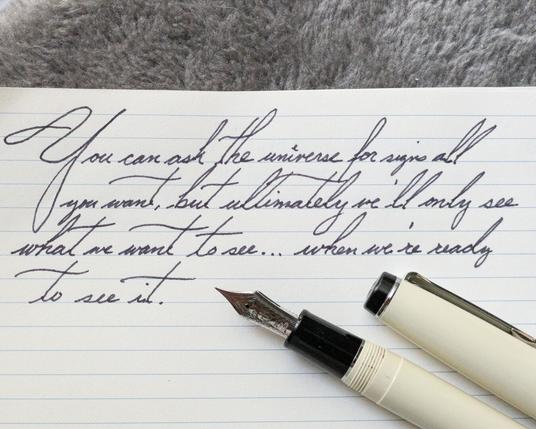 You can ask the universe for signs all
you want, but ultimately we'll only see
what we want to see... when we're ready
to see it.